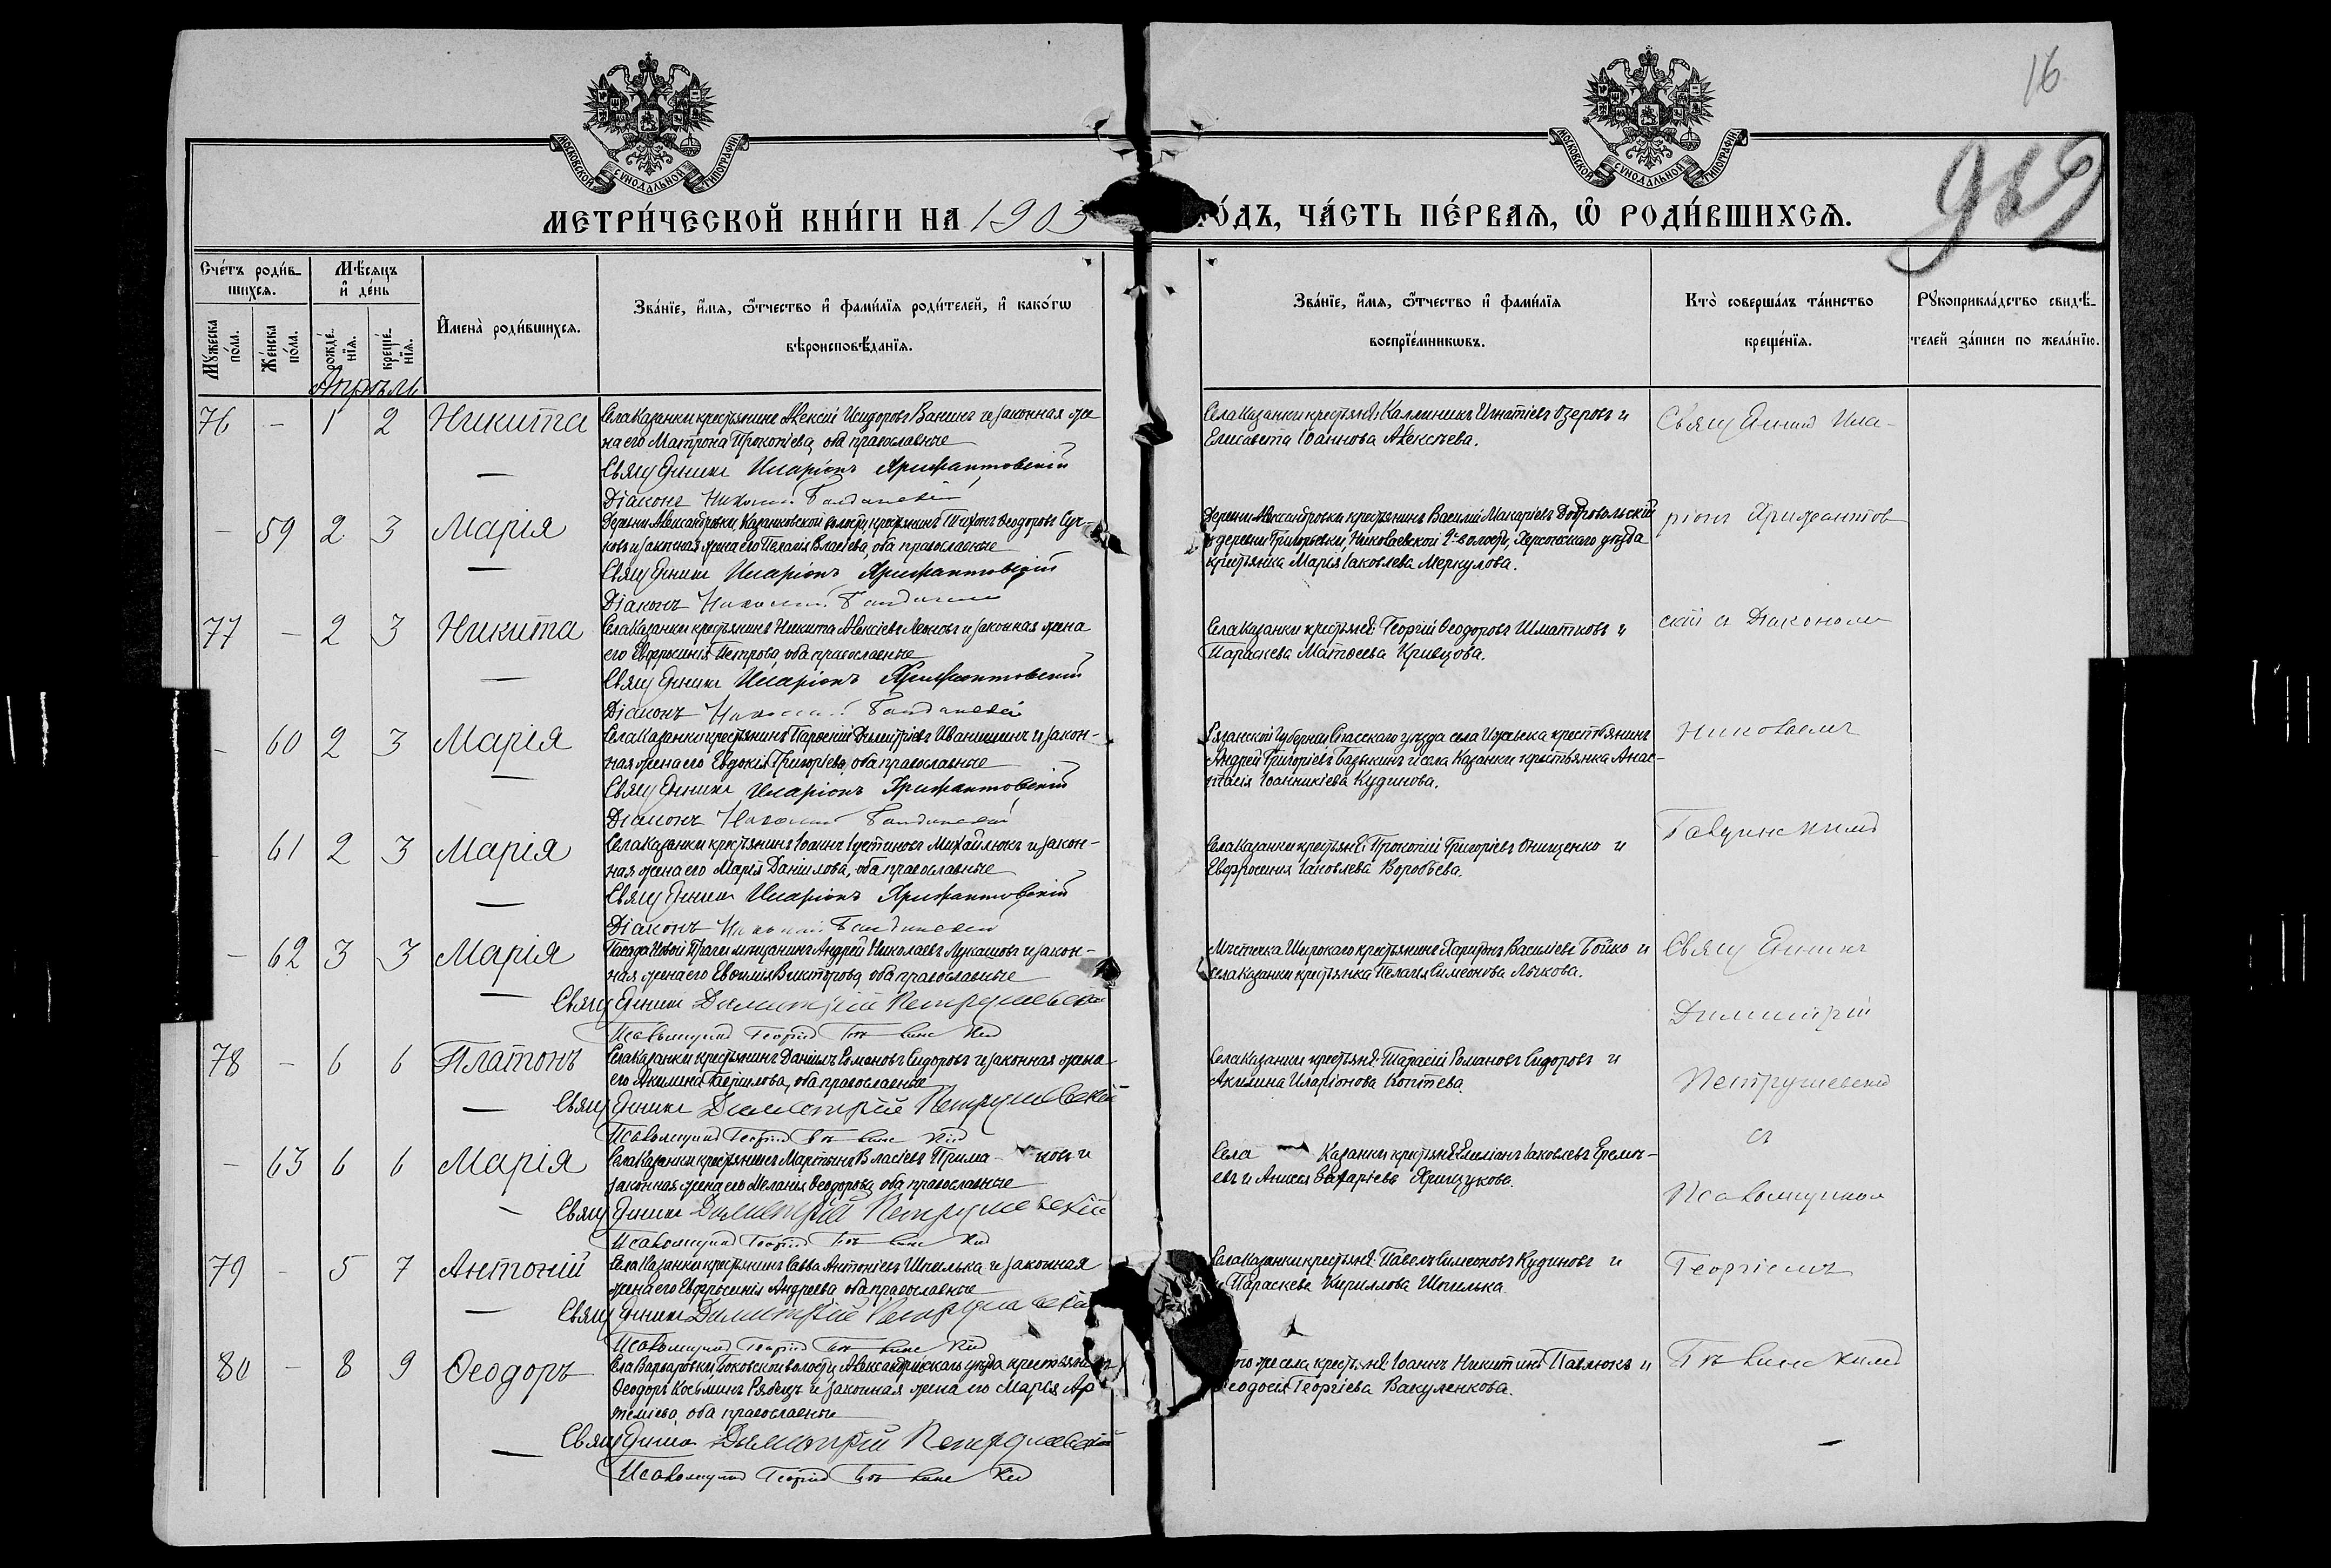 16
МОСКОВСКОЙ СѴНОДАЛЬНОЙ ТИПОГРАФІИ
МОСКОВСКОЙ СѴНОДАЛЬНОЙ ТИПОГРАФІИ
МЕТРИ́ЧЕСКОЙ КНИ́ГИ НА 1903 ГО́ДЪ, ЧА́СТЬ ПЕ́РВАѦ, Ѽ РОДИ́ВШИХСѦ.
Сче́тъ роди́в-
шихсѧ.
Мѣ́сѧцъ
и҆ де́нь
Мꙋ́жеска
по́ла.
Же́нска
по́ла.
рожде́-
нїѧ.
креще́-
нїѧ.
И҆мена̀ роди́вшихсѧ.
Зва́нїе, и҆́мѧ, ѻ҆́тчество и҆ фами́лїѧ роди́телей, и҆ како́гѡ
вѣроисповѣ́данїѧ.
Зва́нїе, и҆́мѧ, ѻ҆́тчество и҆ фами́лїѧ
воспрїе́мникѡвъ.
Кто̀ соверша́лъ та́инство
креще́нїѧ.
Рꙋкоприкла́дство свидѣ́-
телей за́писи по жела́нїю.
Апрѣль
76 - 1 2 Никита
Села Казанки крестьянинъ Алексій Исидоровъ Ванинъ и законная же
на его Матрона Прокопіева, оба православные
Священникъ Иларіонъ Крижантовскій
Діаконъ Николай
Села Казанки крестьяне: Каллиникъ Игнатіевъ Озеровъ и
Елисавета Іоаннова Алексѣева.
Священникъ Ила-
- 59 2 3 Марія
Деревни Александровки, Казанковской волости, крестьянинъ Тихонъ Ѳеодоровъ Суч-
ковъ и законная жена его Пелагія Власіева, оба православные
Священникъ Иларіонъ Крижантовскій
Діаконъ Николай
Деревни Александровки крестьянинъ Василій Макаріевъ Добровольскій
и деревни Григорьевки, Николаевской 2й волости, Херсонскаго уѣзда
крестьянка Марія Іаковлева Меркулова.
ріонъ Крижантов
77 - 2 3 Никита
Села Казанки крестьянинъ Никита Алексіевъ Леоновъ и законная жена
его Евфросинія Петрова, оба православные
Священникъ Иларіонъ Крижантовскій
Діаконъ Николай
Села Казанки крестьяне: Георгій Ѳеодоровъ Шматковъ и
Параскева Матѳеева Кривцова.
скій съ Діакономъ
- 60 2 3 Марія
Села Казанки крестьянинъ Парѳеній Димитріевъ Иванишинъ и закон-
ная жена его Евдокія Григоріева, оба православные
Священникъ Иларіонъ Крижантовскій
Діаконъ Николай
Рязанской губерніи, Спасскаго уѣзда села Ижевска крестьянинъ
Андрей Григоріевъ Базыкинъ и села Казанки крестьянка Анас-
тасія Іоанникіева Кудинова.
Николаемъ
- 61 2 3 Марія
Села Казанки крестьянинъ Іоаннъ Іустиновъ Михайлюкъ и закон-
ная жена его Марія Даніилова, оба православные
Священникъ Иларіонъ Крижантовскій
Діаконъ Николай
Села Казанки крестьяне: Прокопій Григоріевъ Онищенко и
Евфросинія Іаковлева Воробьева.
- 62 3 3 Марія
Посада Новой Праги мѣщанинъ Андрей Николаевъ Лукашовъ и закон-
ная жена его Евѳимія Викторова, оба православные
Священникъ Димитрій Петрушевскій
Псаломщикъ Георгій
Мѣстечка Широкаго крестьянинъ Харитонъ Василіевъ Бойко и
села Казанки крестьянка Пелагія Симеонова Лычкова.
Священникъ
Димитрій
78 - 6 6 Платонъ
Села Казанки крестьянинъ Даніилъ Романовъ Сидоровъ и законная жена
его Акилина Гавріилова, оба православные
Священникъ Димитрій Петрушевскій
Псаломщикъ Георгій
Села Казанки крестьяне: Тарасій Романовъ Сидоровъ и
Акилина Иларіонова Коптева.
Петрушевскій
съ
- 63 6 6 Марія
Села Казанки крестьянинъ Мартинъ Власіевъ Прима- ковъ и
законная жена его Меланія Ѳеодорова, оба православные
Священникъ Димитрій Петрушевскій
Псаломщикъ Георгій
Села Казанки крестьяне: Емиліанъ Іаковлевъ Еремѣ-
евъ и Анисія Захаріева Хрищукова.
Псаломщикомъ
79 - 5 7 Антоній
Села Казанки крестьянинъ Савва Антоніевъ Шпилька и законная
жена его Евфросинія Андреева, оба православные
Священникъ Димитрій Петрушевскій
Псаломщикъ Георгій
Села Казанки крестьяне: Павелъ Симеоновъ Кудиновъ и
Параскева Кириллова Шпилька.
Георгіемъ
80 - 8 9 Ѳеодоръ
Села Варваровки, Боковской волости, Александрійскаго уѣзда крестьянинъ
Ѳеодоръ Косьминъ Рябецъ и законная жена его Марія Ар
теміева, оба православные
Священникъ Димитрій Петрушевскій
Псаломщикъ Георгій
того же села крестьяне: Іоаннъ Никитинъ Павлюкъ и
Ѳеодосія Георгіева Вакуленкова.